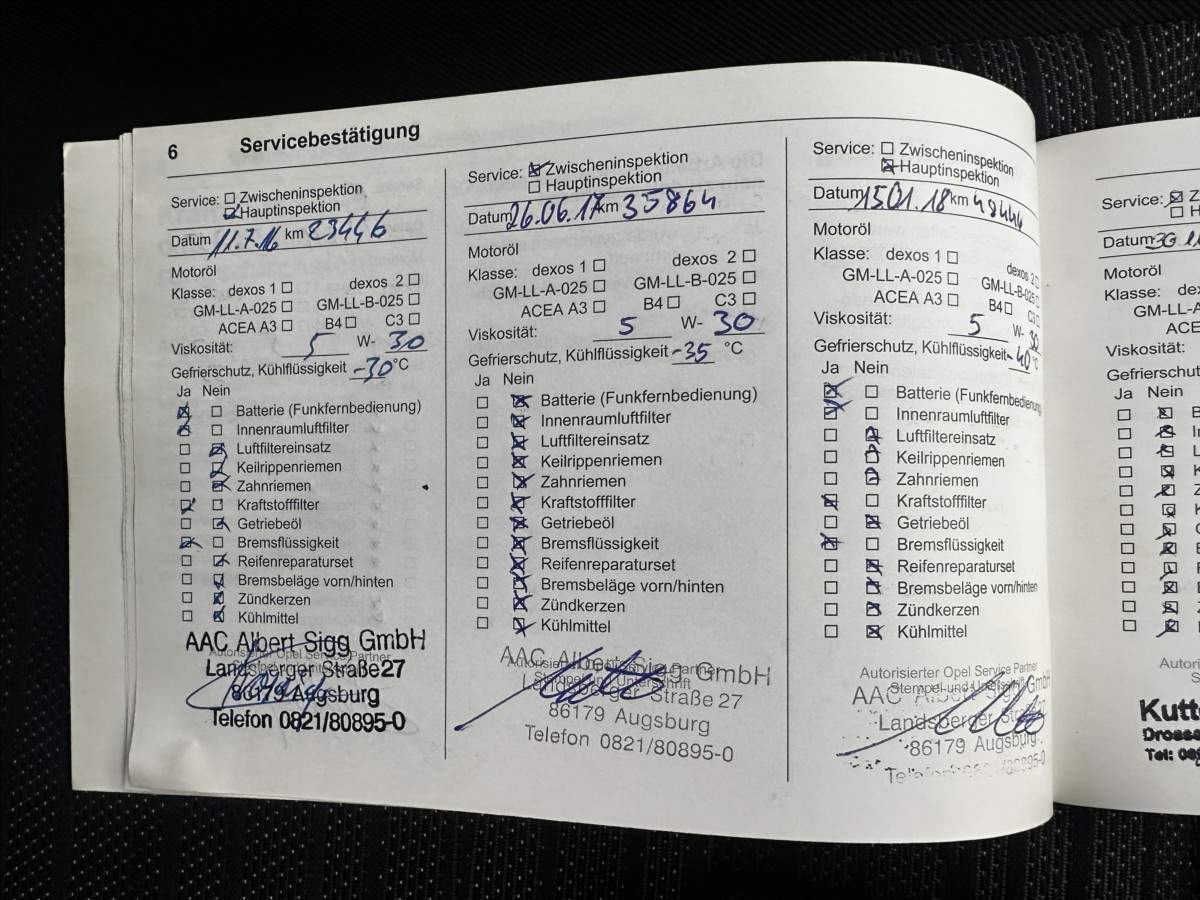 6 Servicebestätigung
Service: Zwischeninspektion
Hauptinspektion
Datum 11.7.16 km 23446
Motoröl
Klasse: dexos 1 dexos 2
GM-LL-A-025 GM-LL-B-025
ACEA A3 B4 C3
Viskosität: 5 W- 30
Gefrierschutz, Kühlflüssigkeit -30 °C
Ja Nein
Batterie (Funkfernbedienung)
Innenraumluftfilter
Luftfiltereinsatz
Keilrippenriemen
Zahnriemen
Kraftstofffilter
Getriebeöl
Bremsflüssigkeit
Reifenreparaturset
Bremsbeläge vorn/hinten
Zündkerzen
Kühlmittel
AAC Albert Sigg GmbH
Autorisierter Opel Service Partner
Landsberger Straße 27
86179 Augsburg
Telefon 0821/80895-0
Service: Zwischeninspektion
Hauptinspektion
Datum 26.06.17 km 35864
Motoröl
Klasse: dexos 1 dexos 2
GM-LL-A-025 GM-LL-B-025
ACEA A3 B4 C3
Viskosität: 5 W- 30
Gefrierschutz, Kühlflüssigkeit -35 °C
Ja Nein
Batterie (Funkfernbedienung)
Innenraumluftfilter
Luftfiltereinsatz
Keilrippenriemen
Zahnriemen
Kraftstofffilter
Getriebeöl
Bremsflüssigkeit
Reifenreparaturset
Bremsbeläge vorn/hinten
Zündkerzen
Kühlmittel
AAC Albert Sigg GmbH
Autorisierter Opel Service Partner
Stempel und Unterschrift
Landsberger Straße 27
86179 Augsburg
Telefon 0821/80895-0
Service: Zwischeninspektion
Hauptinspektion
Datum 15.01.18 km 49446
Motoröl
Klasse: dexos 1 dexos 2
GM-LL-A-025 GM-LL-B-025
ACEA A3 B4 C3
Viskosität: 5 W- 30
Gefrierschutz, Kühlflüssigkeit -40 °C
Ja Nein
Batterie (Funkfernbedienung
Innenraumluftfilter
Luftfiltereinsatz
Keilrippenriemen
Zahnriemen
Kraftstofffilter
Getriebeöl
Bremsflüssigkeit
Reifenreparaturset
Bremsbeläge vorn/hinten
Zündkerzen
Kühlmittel
Autorisierter Opel Service Partner
Stempel und Unterschrift
AAC Albert Sigg GmbH
Landsberger
86179 Augsburg
Telefon
Service: Z
H
Datum
Motoröl
Klasse: dex
GM-LL-A
ACE
Viskosität:
Gefriersch
Ja Nein
Autoris
Kutt
Drosse
Tel: